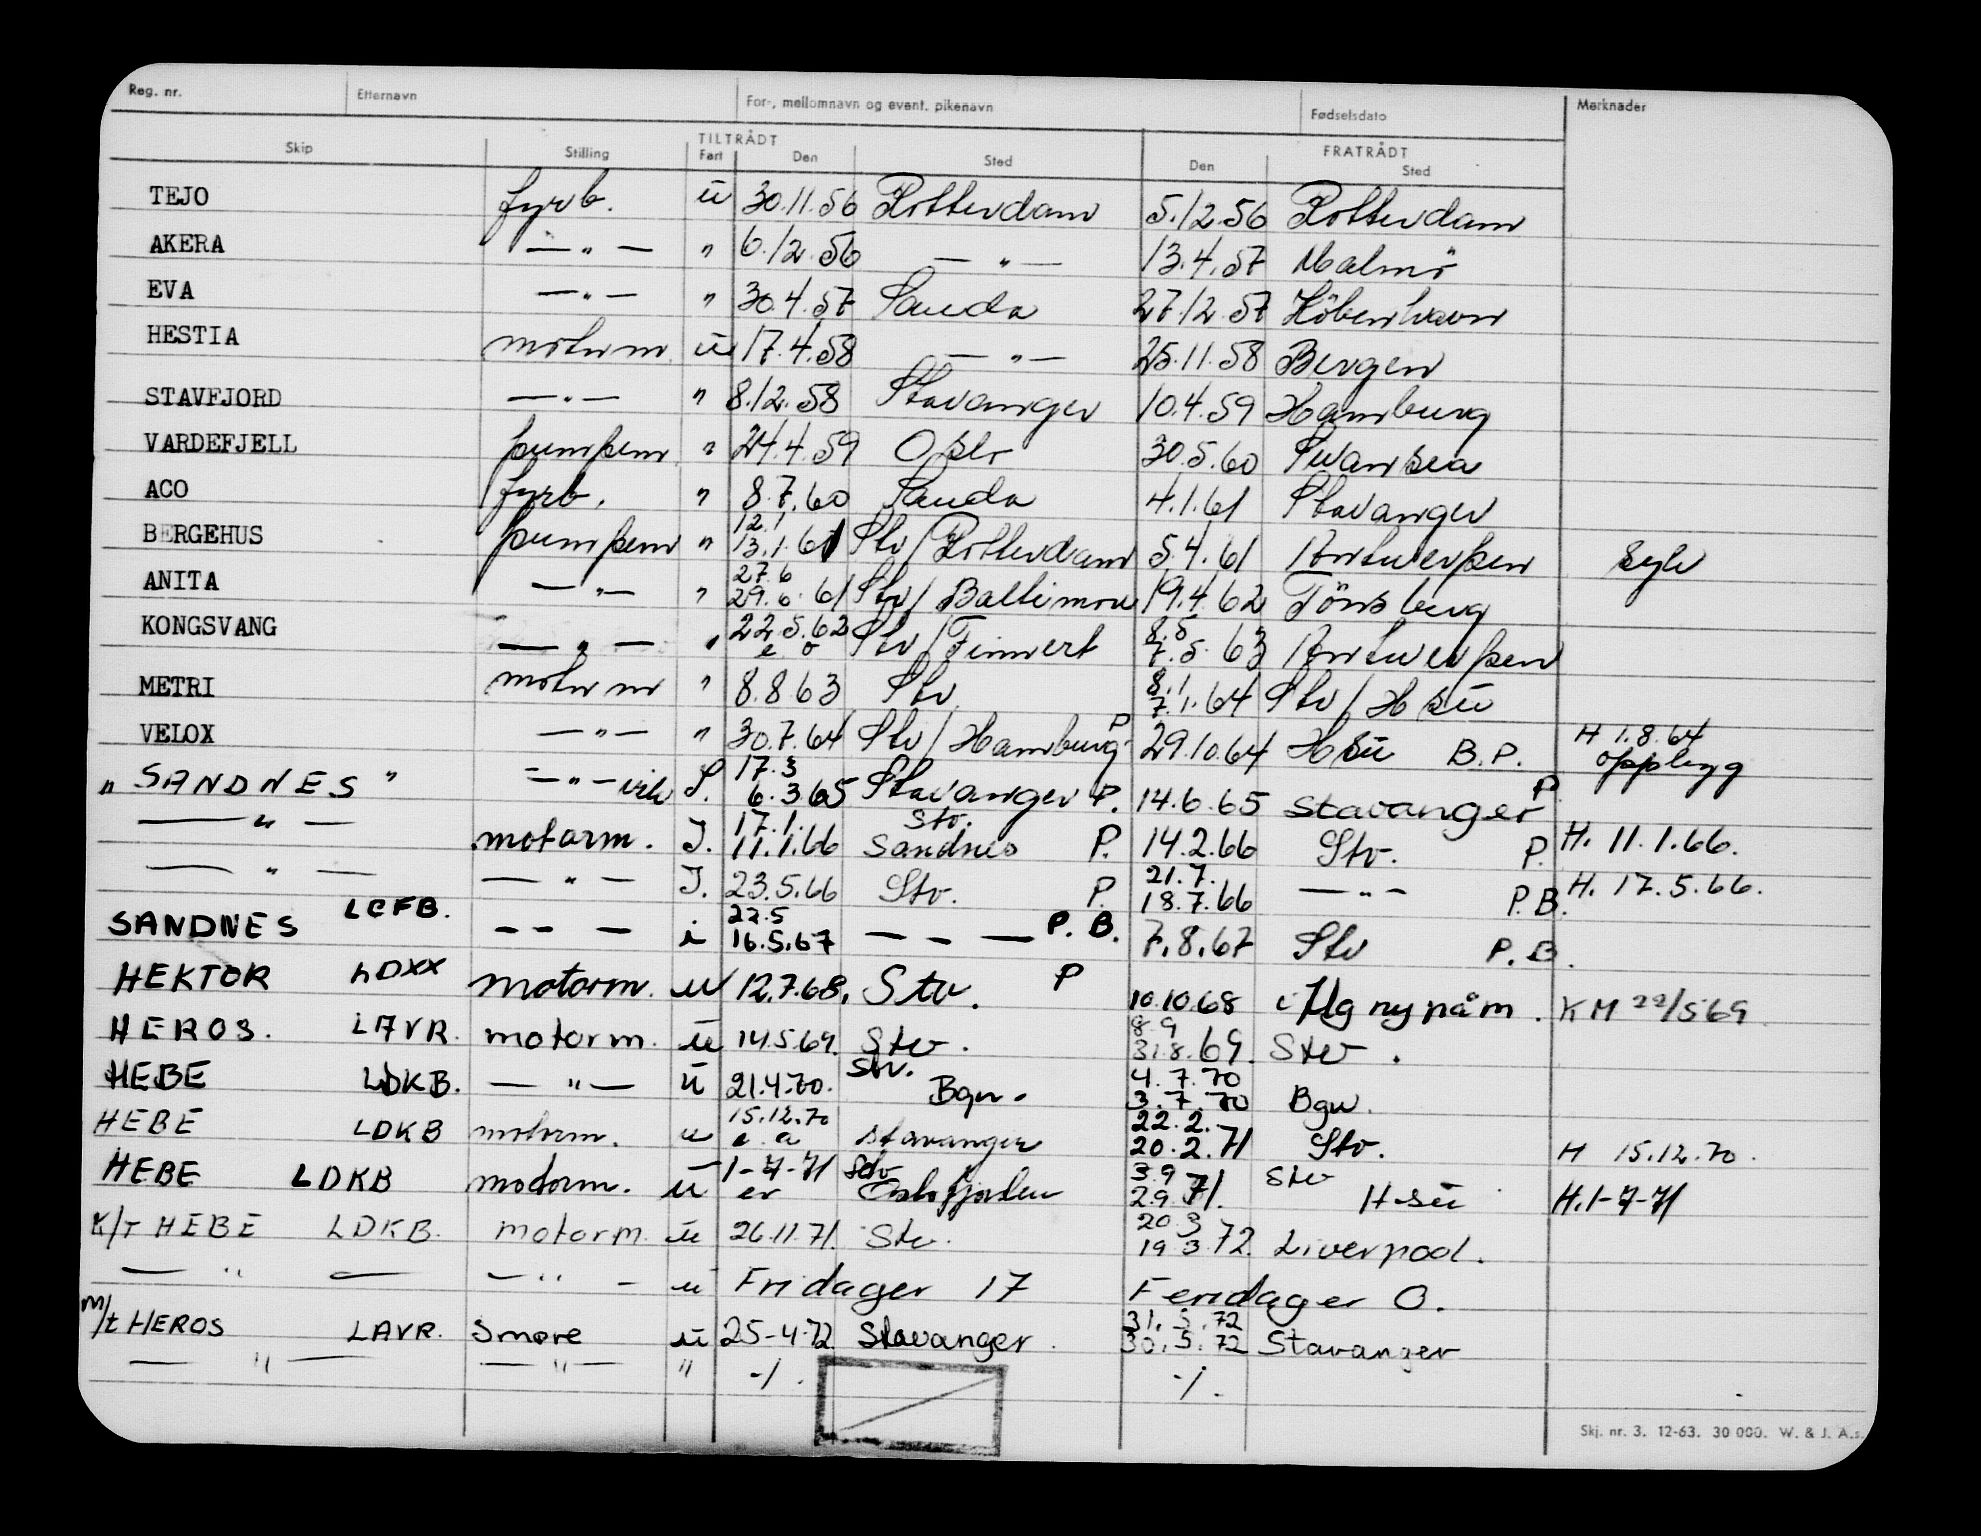 Reg. nr. Etternavn For-, mellomnavn og event. pikenavn Fødselsdato Merknader
Skip Stilling TILTRÅDT Fart Den Sted FRATRÅDT Den Sted
TEJO fyrb. ū 30.11.56 Rotterdam 5.12.56 Rotterdam
AKERA — " — " 6.12.56 — " — 13.4.57 Malmö
EVA — " — " 30.4.57 Sauda 27.12.57 Köbenhavn
HESTIA motorm ū 17.4.58 — " — 25.11.58 Bergen
STAVFJORD — " — " 8.12.58 Stavanger 10.4.59 Hamburg
VARDEFJELL pumpem " 24.4.59 Oslo 30.5.60 Swansea
ACO fyrb. " 8.7.60 Sauda 4.1.61 Stavanger
BERGEHUS pumpem " 12.1 13.1.61 Stv/Rotterdam 5.4.61 Antwerpen syk
ANITA — " — " 27.6 29.6.61 Stv/Baltimore 19.4.62 Tönsberg
KONGSVANG — " — " 22.5.62 Stv/Finnert 8.5 7.5.63 Antwerpen
METRI motorm " 8.8.63 Stv 8.1 7.1.64 Stv/H sū
VELOX — " — " 30.7.64 Stv/Hamburg P 29.10.64 H sū B.P. H 1.8.64 opplegg
" SANDNES " — " — vik S. 17.3 6.3.65 Stavanger P. 14.6.65 Stavanger P.
— " — motorm. I. 17.1. 11.1.66 Stv. Sandnes P. 14.2.66 Stv. P. H. 11.1.66.
— " — — " — I. 23.5.66 Stv. P. 21.7. 18.7.66 — " — P.B. H. 17.5.66.
SANDNES LCFB. — — — i 22.5 16.5.67 — — — P.B. 7.8.67 Stv P.B.
HEKTOR LDXX motorm. u 12.7.68. Stv. P 10.10.68 i Hg ny påm. KM 22/5 69
HEROS. LAVR. motorm. ū 14.5.69. Stv. 8 9 31.8.69. Stv.
HEBE LDKB. — " — ū 21.4.70. Stv. Bgn. 4.7.70 3.7.70 Bgn.
HEBE LDKB motorm. u 15.12.70 e.a Stavanger 22.2. 20.2.71 Stv. H 15.12.70.
HEBE LDKB motorm. ū 1-7-71 er Stv Oslofjorden 3.9 2.9.71. Stv H-sū H.1-7-71
K/T HEBE LDKB. motorm. ū 26.11.71. Stv. 20.3 19.3.72. Liverpool.
— " — — " — ū Fridager 17 Feridager 0.
m/t HEROS LAVR. Smøre ū 25-4-72 Stavanger. 31.5.72 30.5.72 Stavanger
— " — — " — " -/. -/.
Skj. nr. 3. 12-63. 30 000. W. & J. A.s.